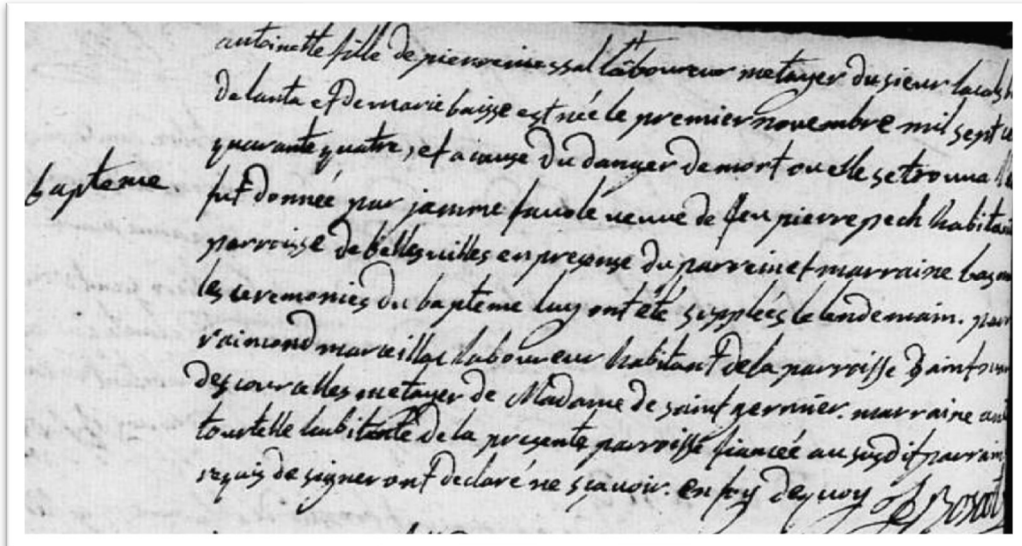 antoinette fille de pierre miessal laboureur metayer du sieur lacoste
de lanta et de marie baisse est née le premier novembre mil sept ce
quarante quatre, et a cause du danger de mort ou elle se trouva
bapteme
fut donnée par jamme fauolé veuve de feu pierre pech habitan
parroisse de bellesvilles en presense du parrein et marraine
les ceremonies du bapteme luy ont été supplées le lendemain. par
raimond marceillac laboureur habitant de la parroisse saint
descoualles metayer de Madame de saint pernier. marraine
tourtelle habitante de la presente parroisse fiancée au susdit parrain
requis de signer ont declaré ne sçavoir. en foy de quoy